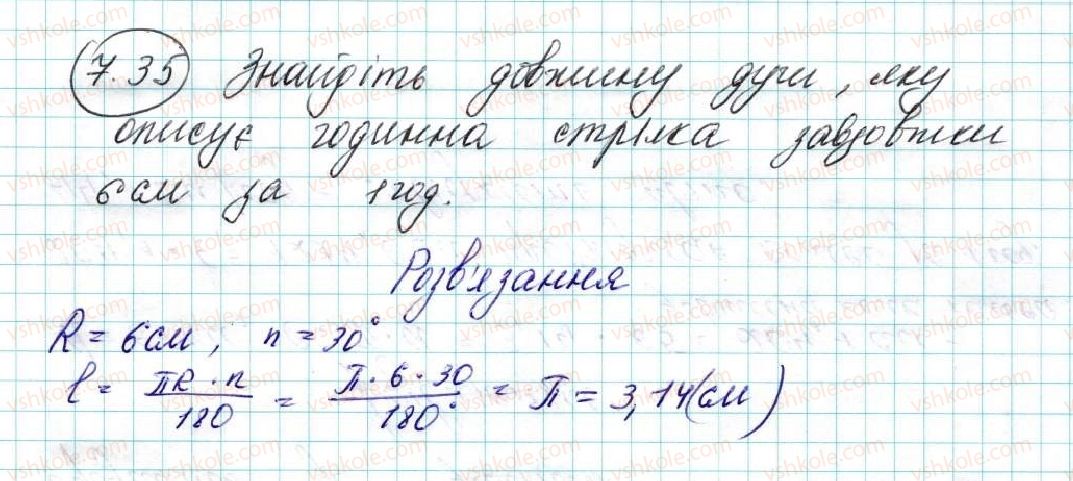 7.35 Знайдіть довжину дуги, яку
описує годинна стрілка завдовжки
6 см за 1 год.
Розв'язання
R = 6 см, n = 30°
l = πR · n / 180 = π · 6 · 30 / 180° = π = 3,14 (см)